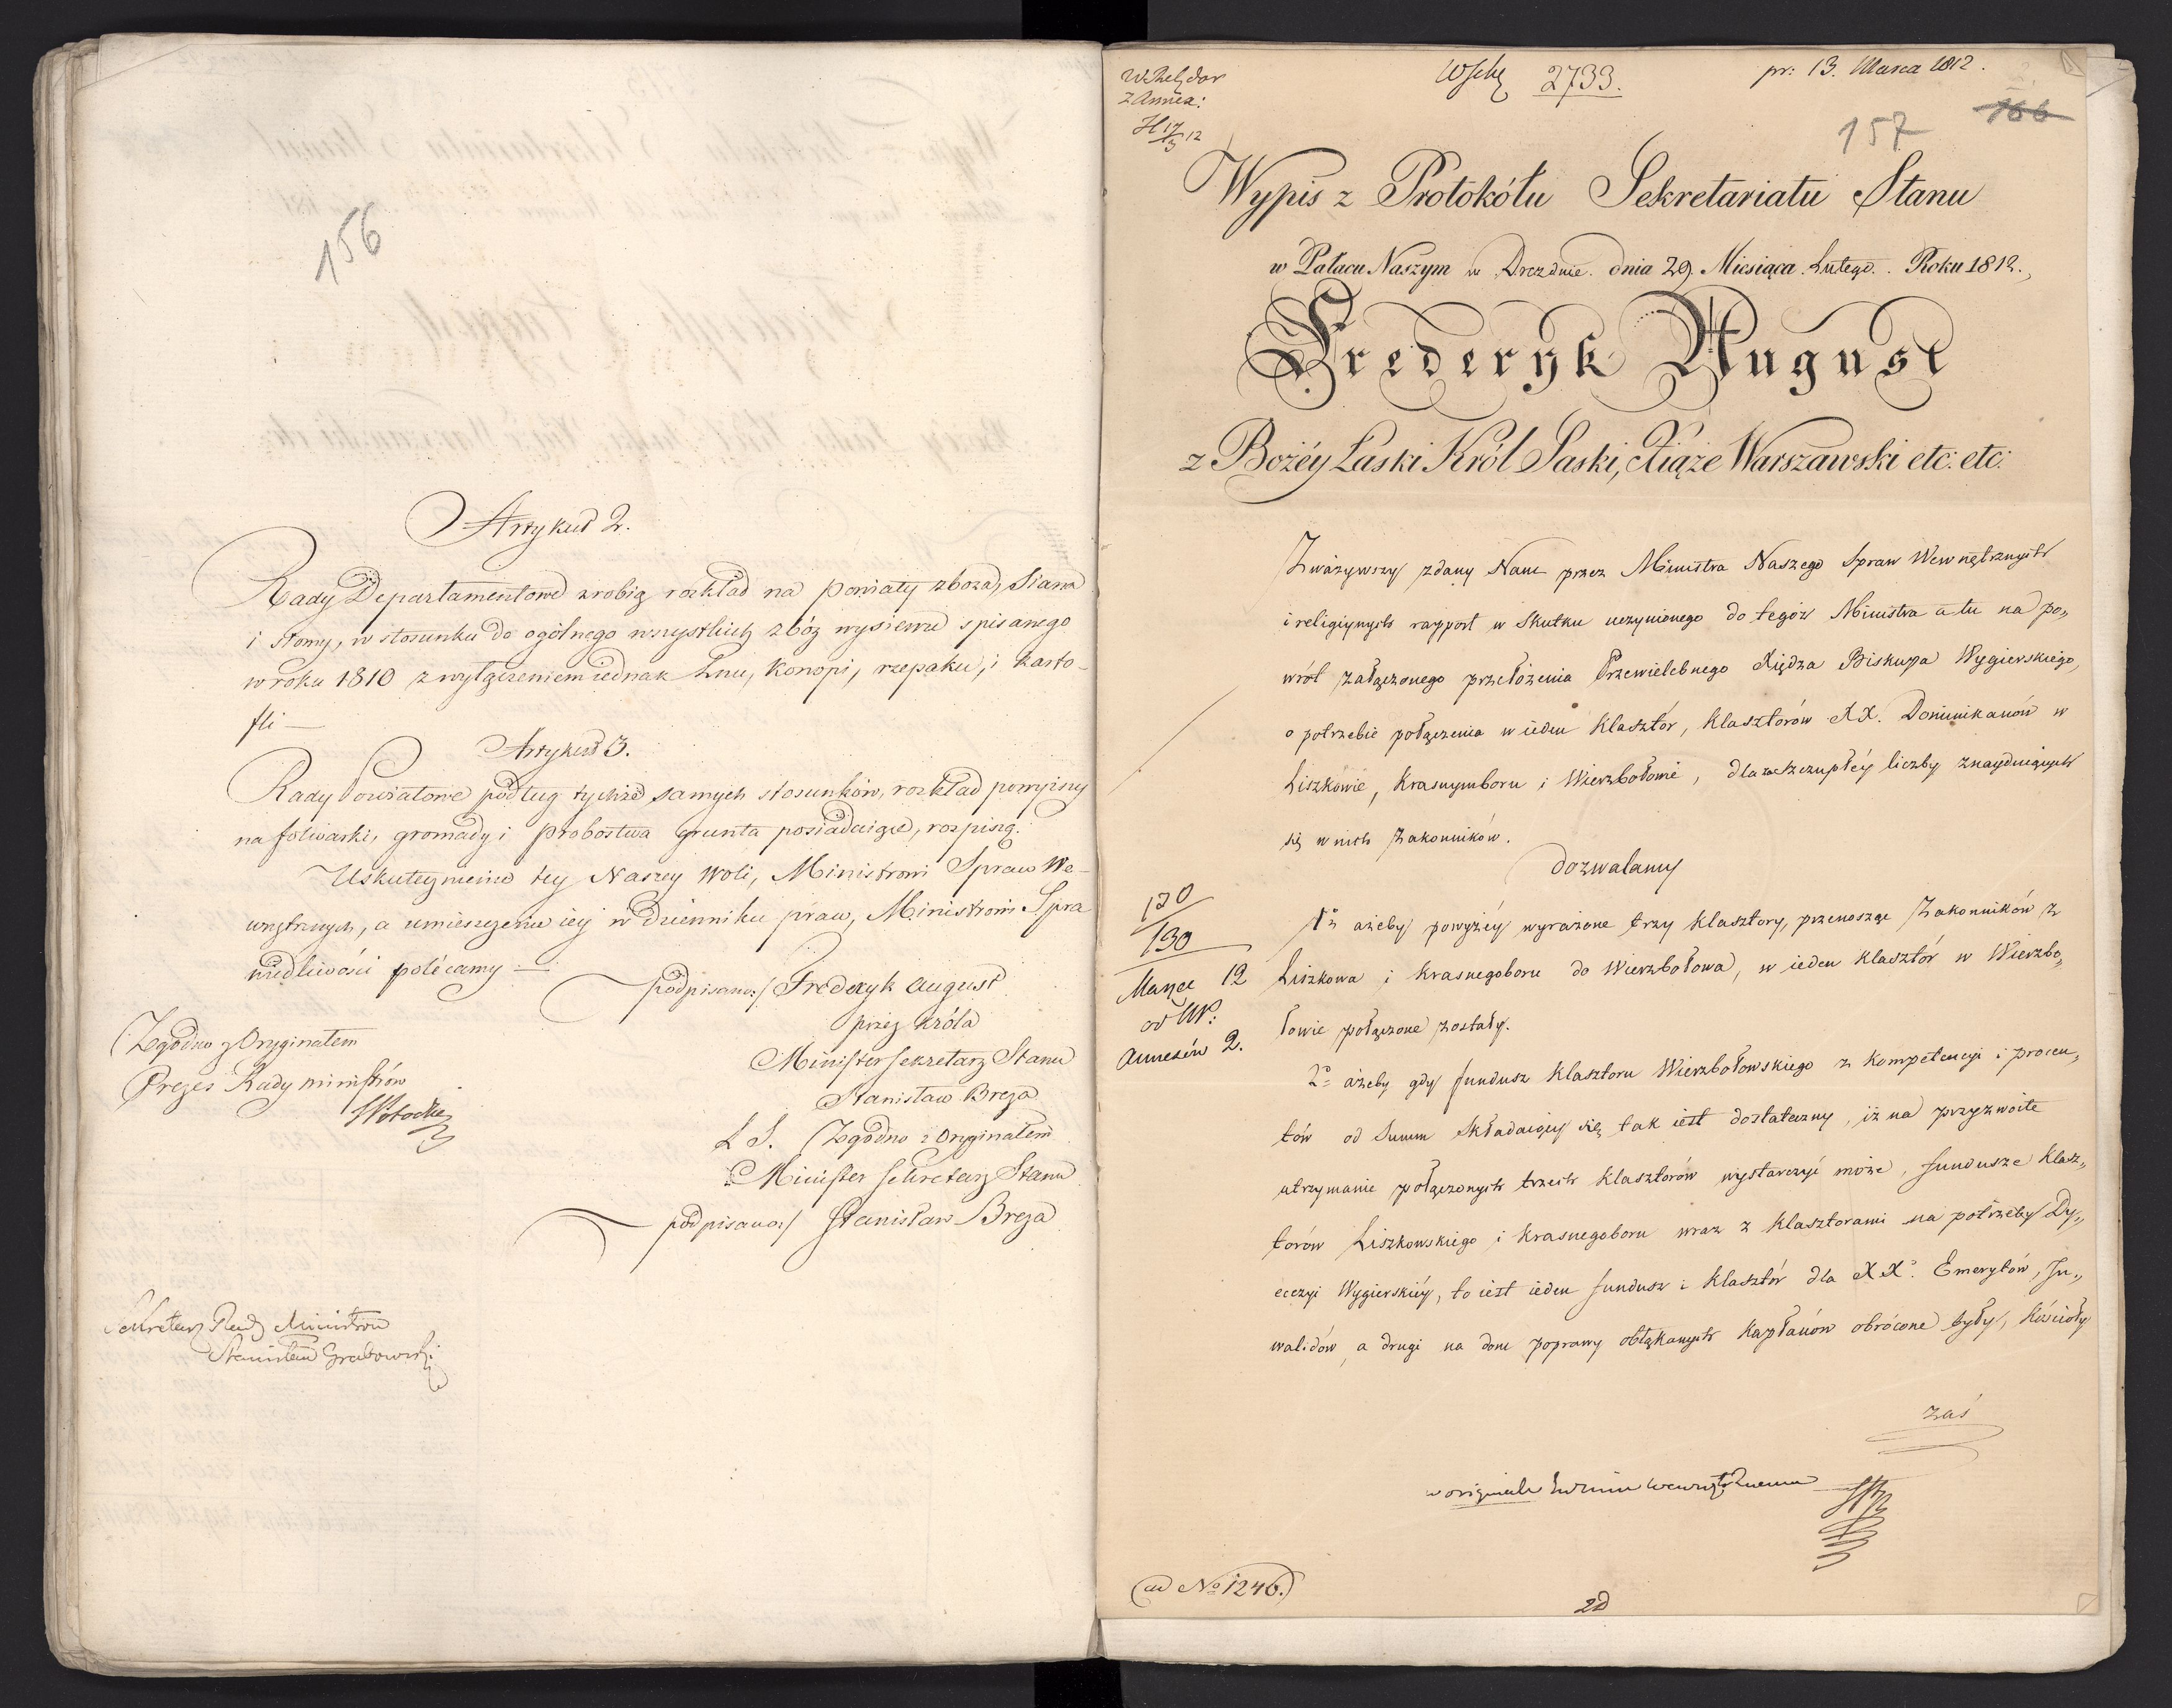 156
Artykuł 2.
Rady Departamentowe zrobią rozkład na powiaty zboża, Siana
i słomy, w stosunku do ogólnego wszystkich zbóż wysiewu spisanego
w roku 1810 z wyłączeniem iednak Lnu, Konopi, rzepaku, i karto-
fli —
Artykuł 3.
Rady Powiatowe podług tychże samych stosunków, rozkład powyższy
na folwarki, gromady i probostwa grunta posiadaiące, rozpiszą.
Uskutecznienie tey Naszey Woli, Ministrowi Spraw We-
wnętrznych, a umieszczenie iey w dzienniku praw, Ministrowi Spra
wiedliwości polécamy —
podpisano:/ Frederyk August
przez Króla
Minister Sekretarz Stanu
Stanisław Breza
L S. Zgodno z Oryginałem
Minister Sekretarz Stanu
podpisano:/ Stanisław Breza
Zgodno z Oryginałem
Prezes Rady ministrów
Potocki
Sekretarz Rady Ministrów
Stanisław Grabowski
z Annex:
H 17/3 12
2733.
pr: 13. Marca 1812.
166
157
Wypis z Protokółu Sekretariatu Stanu
w Pałacu Naszym w Dreznie. dnia 29. Miesiąca Lutego. Roku 1812.
Frederyk August
z Bożéy Łaski Król Saski, Xiąże Warszawski etc: etc:
Zważywszy zdany Nam przez Ministra Naszego Spraw Wewnętrznych
i religiynych rapport w skutku uczynionego do tegoż Ministra a tu na po„
wrót załączonego przełożenia Przewielebnego Xiędza Biskupa Wygierskiego,
o potrzebie połączenia w ieden Klasztór, Klasztorów XX. Dominikanów w
Liszkowie, Krasnymboru i Wierzbołowie, dla szczupłéy liczby znayduiących
się w nich Zakonników.
Dozwalamy
1º ażeby powyżéy wyrażone trzy Klasztory, przenosząc Zakonników z
Liszkowa i Krasnegoboru do Wierzbołowa, w ieden Klasztór w Wierzbo„
łowie połączone zostały.
2º ażeby gdy fundusz Klasztoru Wierzbołowskiego z Kompetencyi i procen„
tów od Summ składaiący się tak iest dostateczny, iż na przyzwoite
utrzymanie połączonych trzech Klasztorów wystarczyć może, fundusze Klasz„
torów Liszkowskiego i Krasnegoboru wraz z Klasztorami na potrzeby Dy„
ecezyi Wygierskiéy, to iest ieden fundusz i Klasztór dla XX. Emerytów, In„
walidów, a drugi na dom poprawy obłąkanych Kapłanów obrócone były, Kościoły
zaś
130
190
Marca 12
Annexów 2.
w originale
(ad No 1246.)
2d